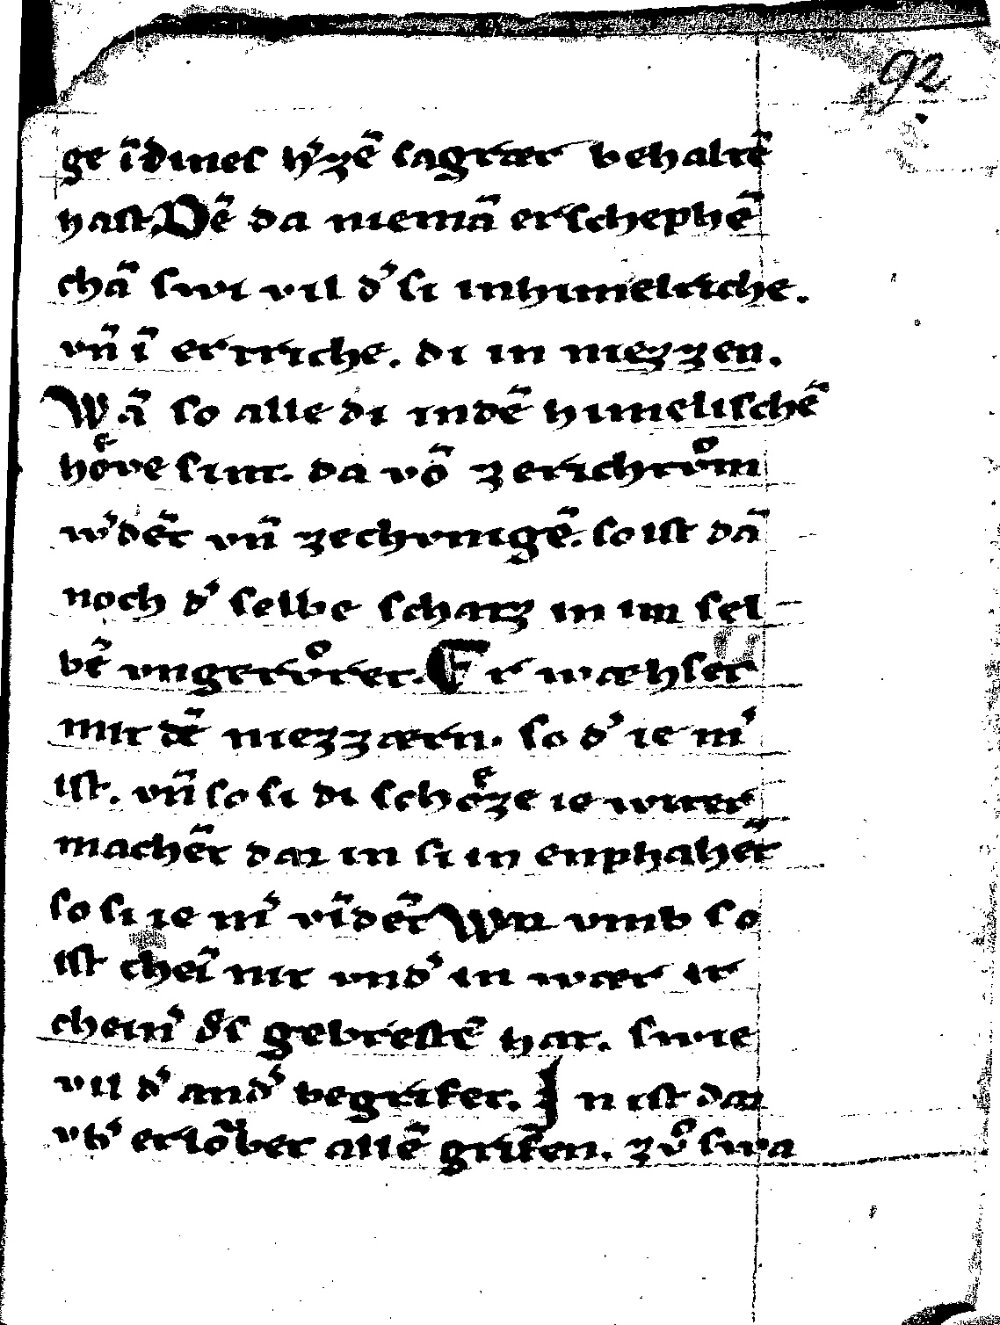 92
ge ī dines h'zē sagrær behaltē
hast Dē da niemā erschephē
chā swi vil d' si inhimelriche.
vn̄ ī ertriche. di in niezzen.
Wā so alle di indē himelischē
hoͤve sint. da vō zerichtvͦm
w'dēt vn̄ zechvnigē. so ist dā
noch d' selbe schatz in im sel
bē vngervͦret. Er wæhset
mit dē niezzærn. so d' ie m'
ist. vn̄ so si di schoͤze ie witer
machēt daz in si in enphahēt
so si ie m' vīdēt Waz vmb so
ist cheī nit vnd' in wær ir
chein' d's gebrestē hat. swie
vil d' and' begrifet. In ist daz
vb' erlōbet allē grifen. zvͦ swa